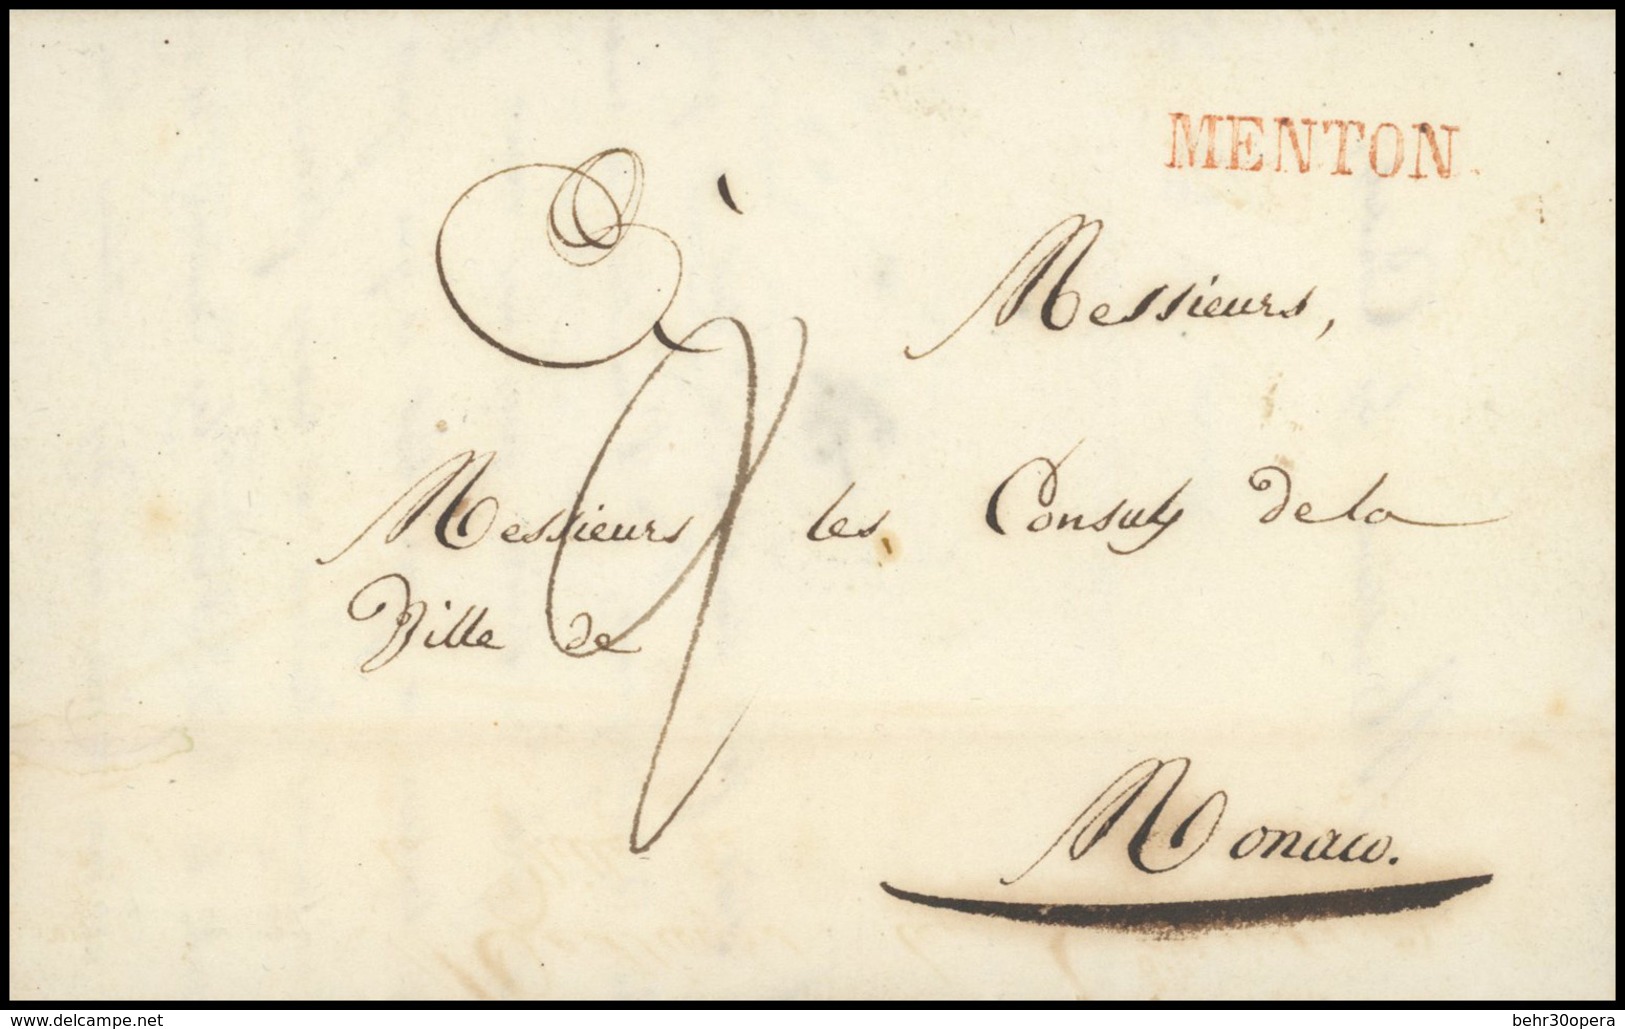 MENTON
Messieurs,
Messieurs les Consuls de la
Ville de
Monaco.
www.delcampe.net
behr30opera